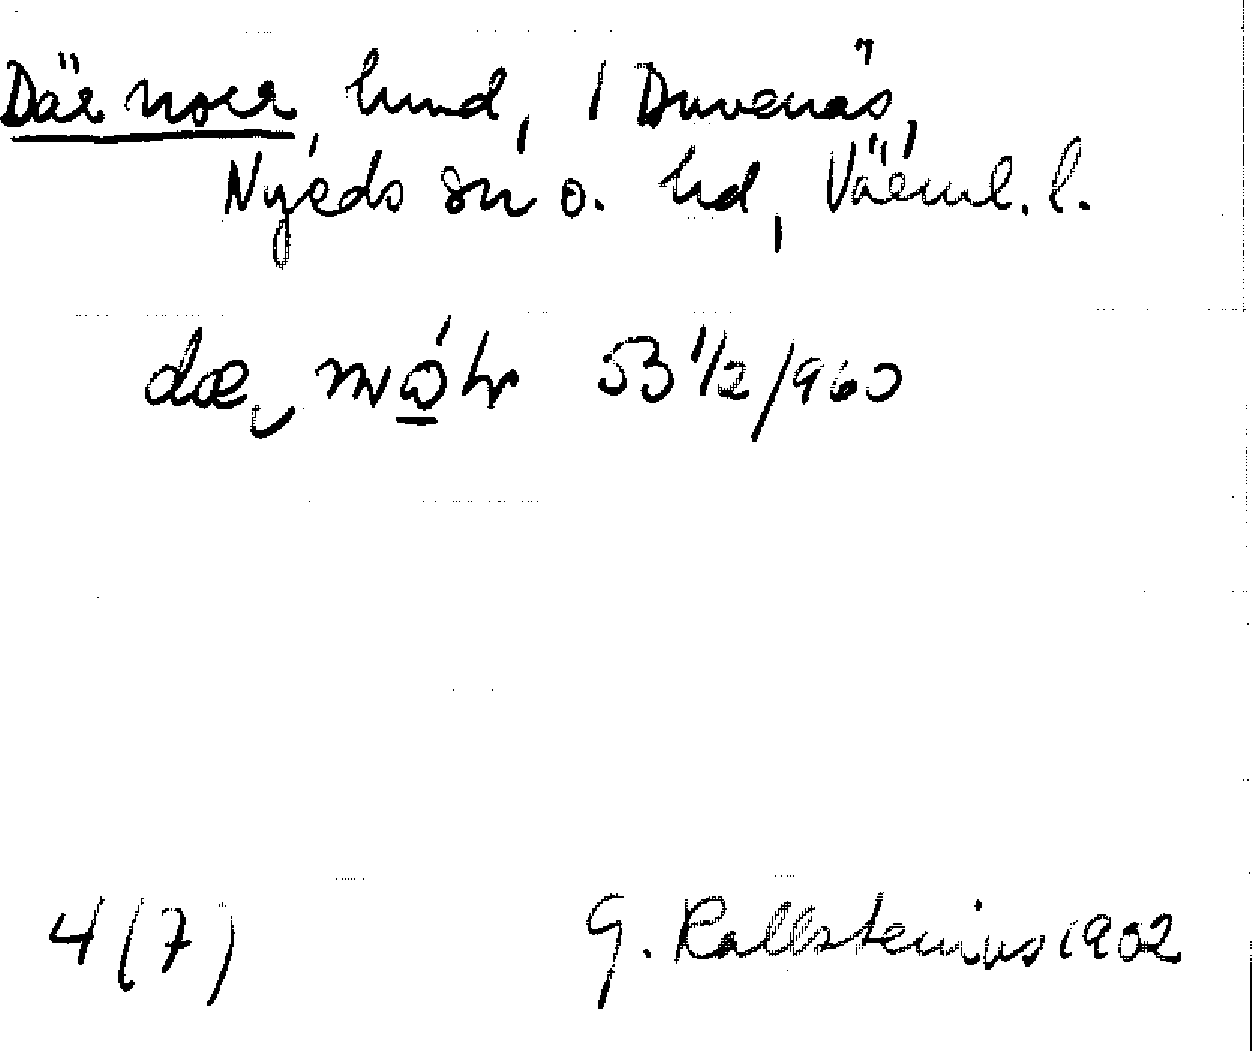 Där norr, hund, 1 Duvenäs,
Nyeds sn o. hd, Värml. l.
53 1/2/960
4 (7) G. Kallstenius 1902